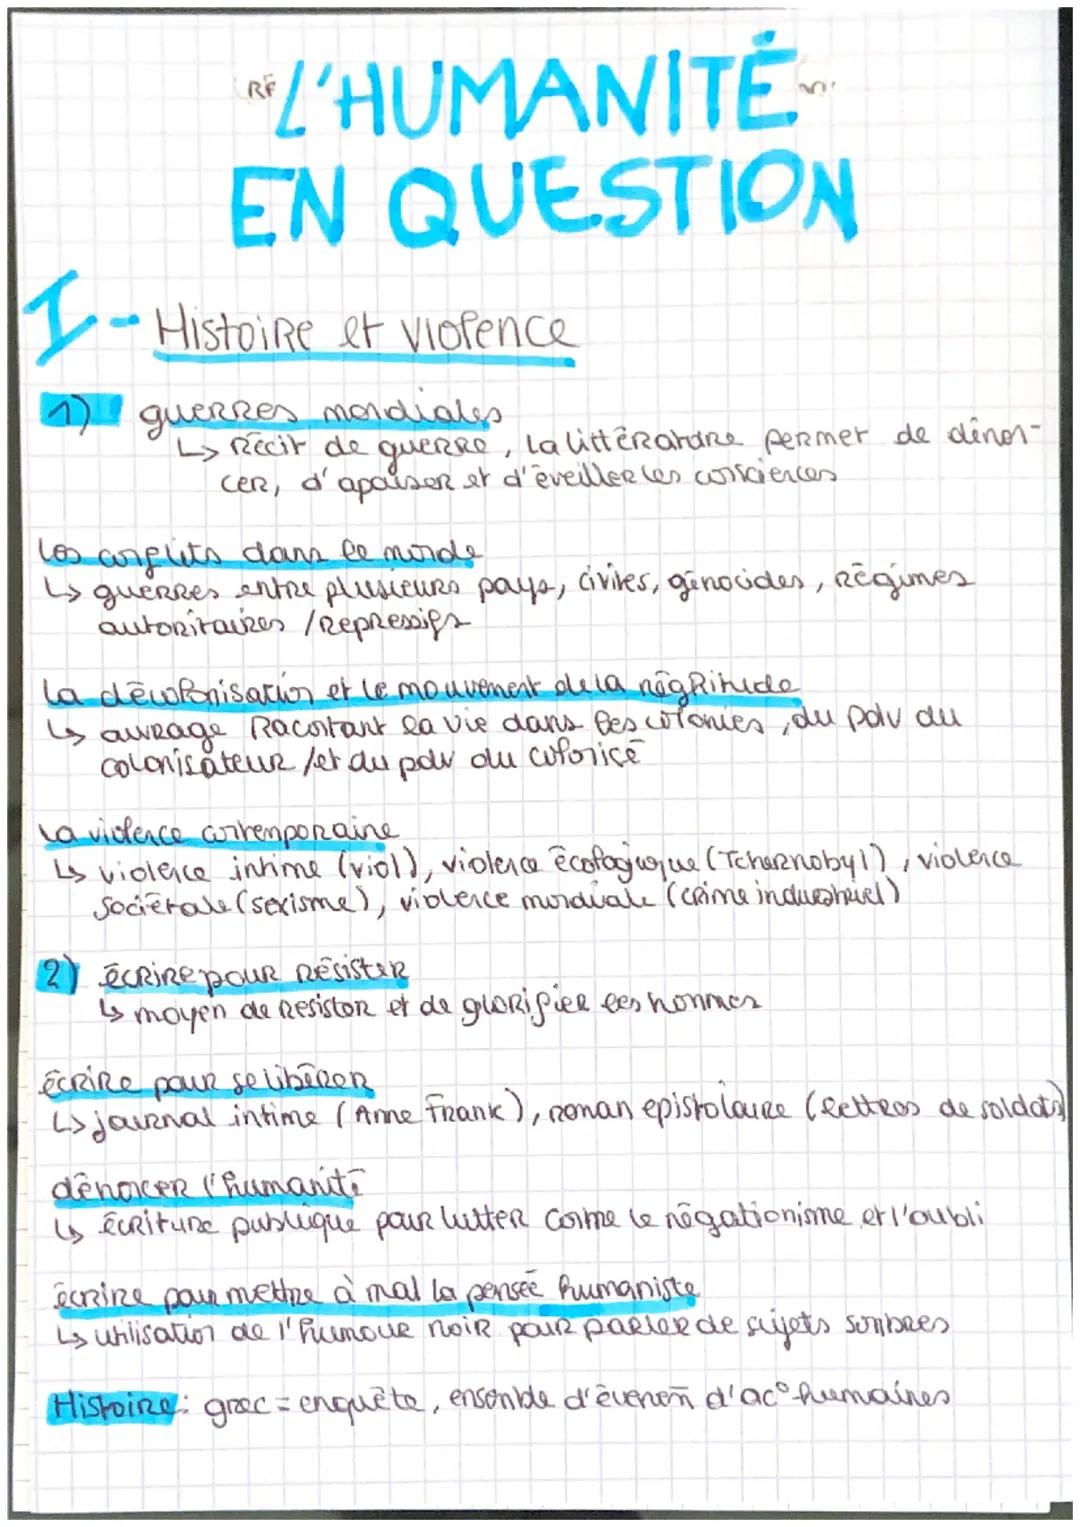 L'HUMANITÉ
EN QUESTION
I - Histoire et violence
1) guerres mondiales
↳ Récit de guerre, la littérature permet de dénon-
cer, d'apaiser et d'éveiller les consciences
les conflits dans le monde
↳ guerres entre plusieurs pays, civiles, génocides, Régimes
autoritaires / Répressifs
la décolonisation et le mouvement de la négritude
↳ ouvrage Racontant la vie dans les colonies, du pdv du
colonisateur / et du pdv du colonisé
la violence contemporaine
↳ violence intime (viol), violence écologique (Tchernobyl), violence
sociétale (sexisme), violence mondiale (crime industriel)
2) écrire pour Résister
↳ moyen de Resister et de glorifier les hommes
écrire pour se libérer
↳ journal intime (Anne Frank), roman epistolaire (lettres de soldats)
dénoncer l'humanité
↳ écriture publique pour lutter contre le négationisme et l'oubli
écrire pour mettre à mal la pensée humaniste
↳ utilisation de l'humour noir pour parler de sujets sombres
Histoire : grec = enquête, ensemble d'évènem̄ d'ac° humaines